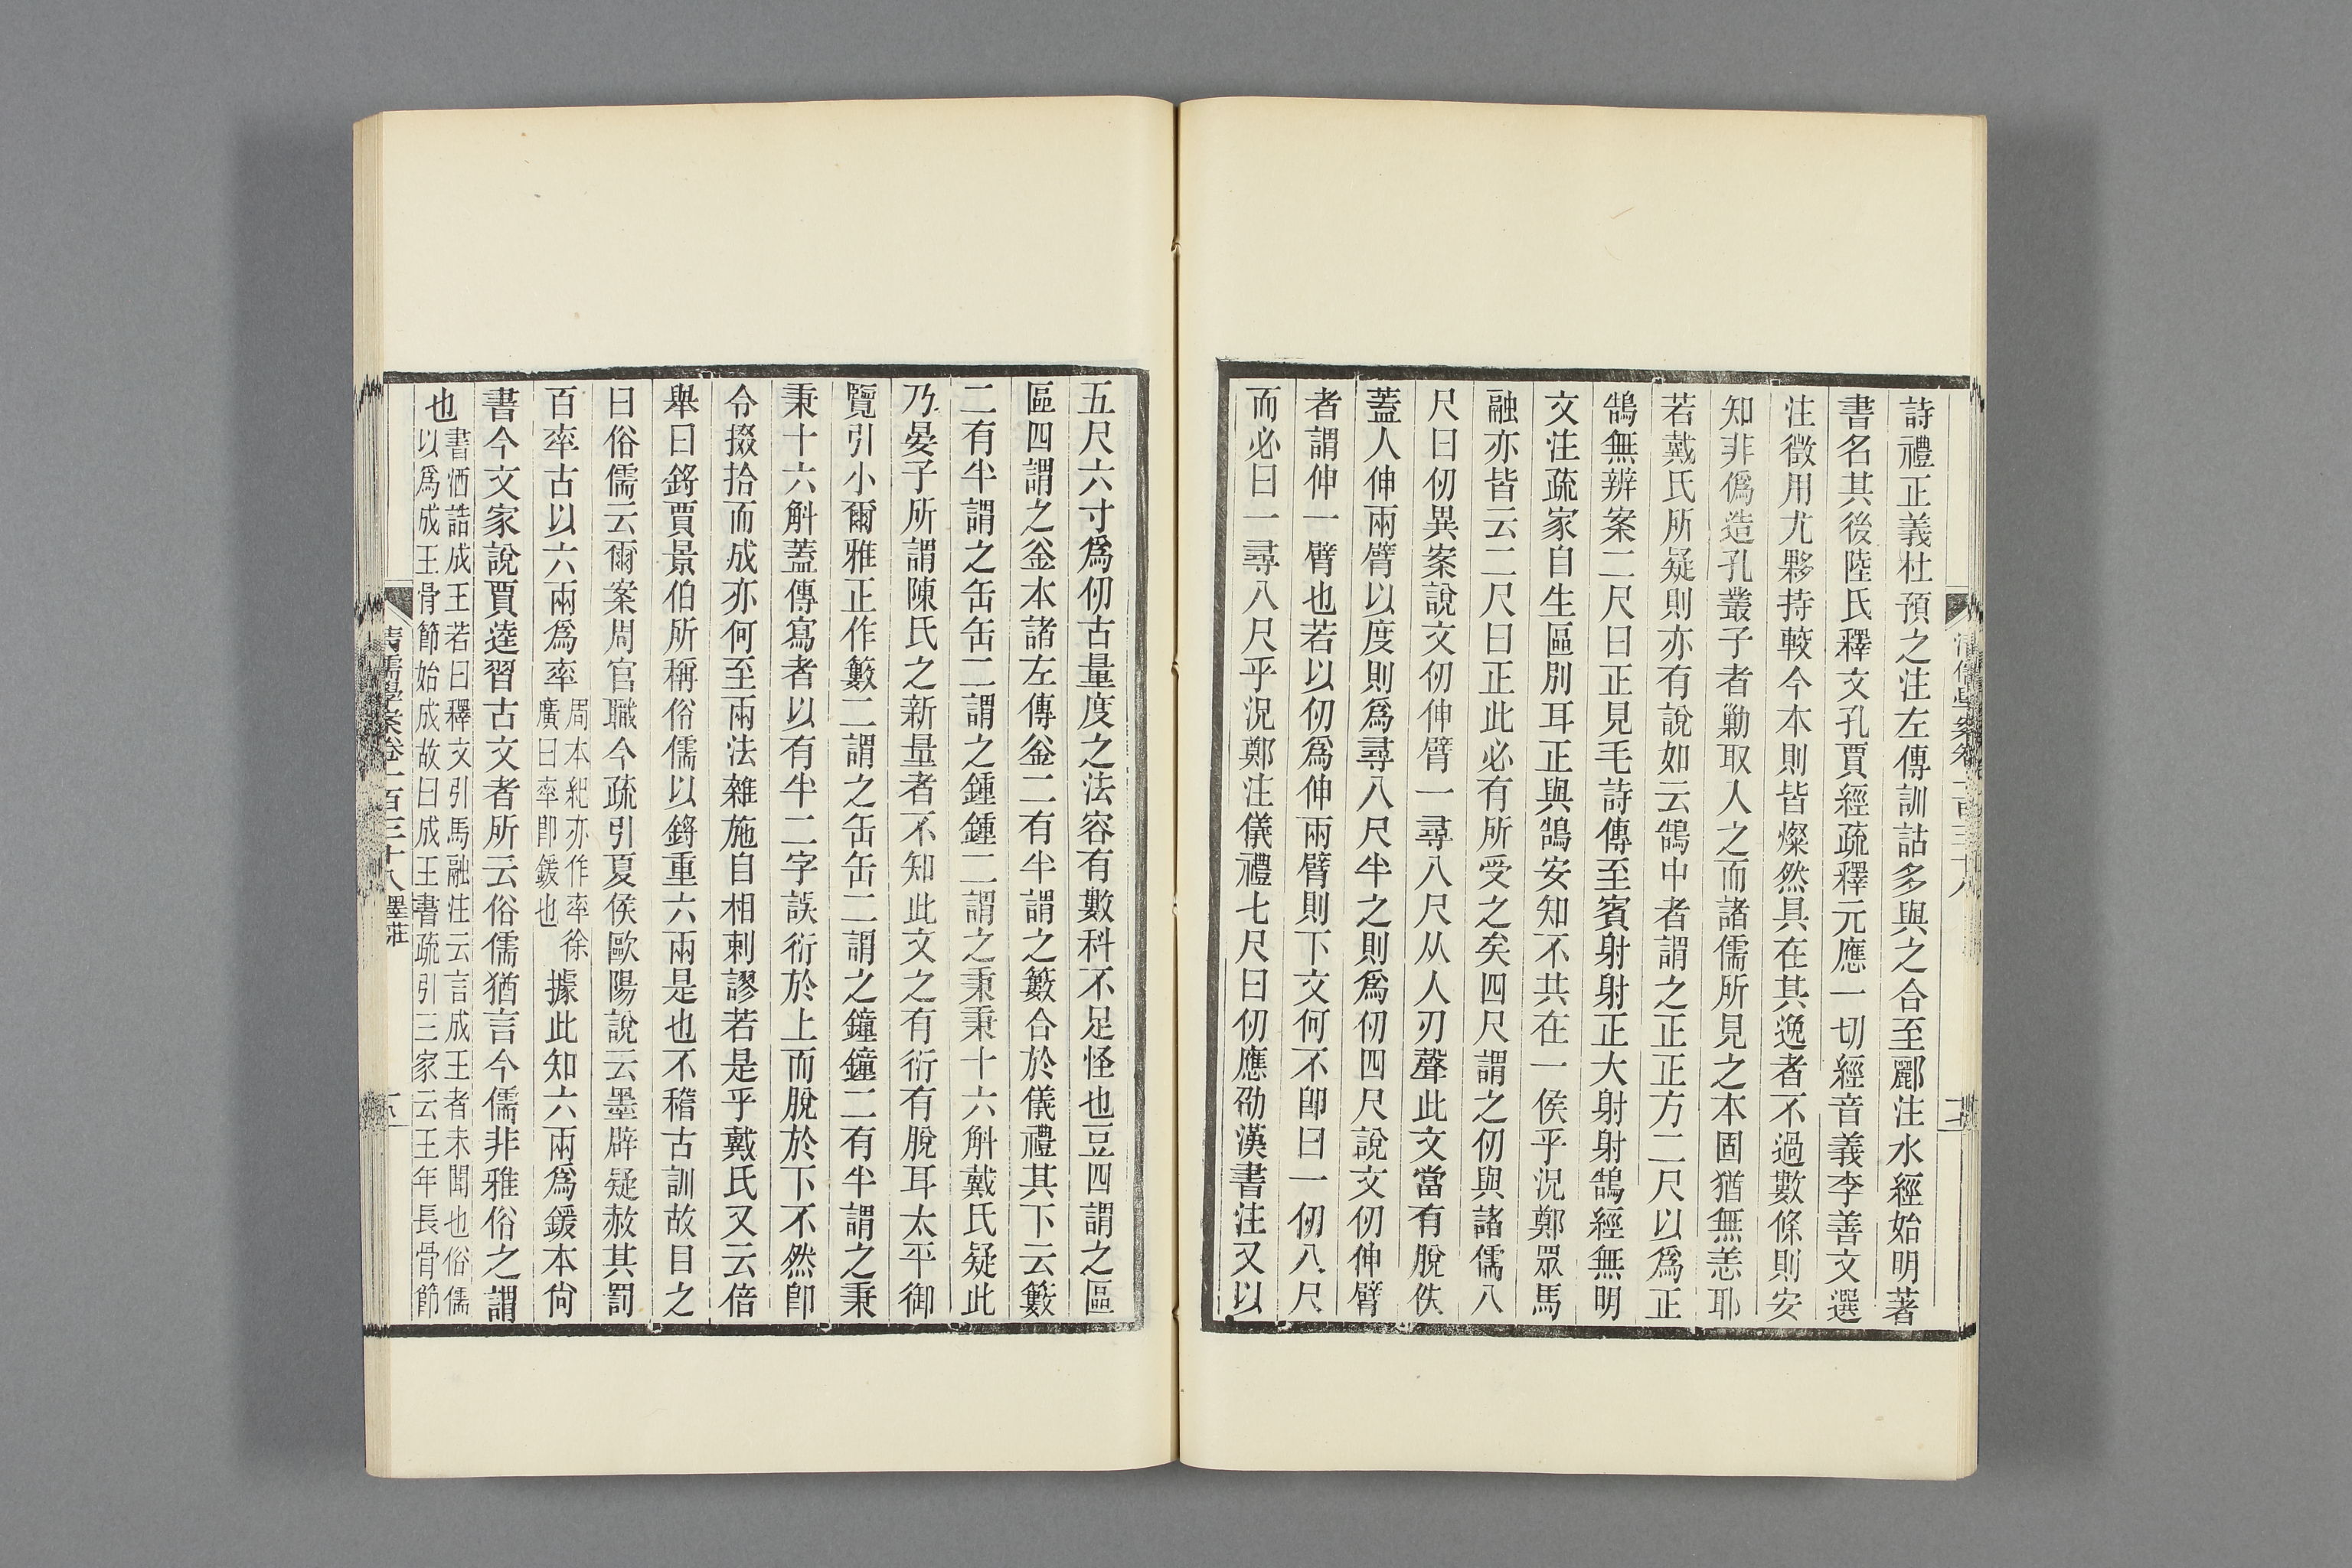 詩禮正義杜預之注左傳訓詁多與之合至酈注水經始明著
書名其後陸氏釋文孔賈經疏釋元應一切經音義李善文選
注徵用尤夥持較今本則皆燦然具在其逸者不過數條則安
知非僞造孔叢子者勦取入之而諸儒所見之本固猶無恙耶
若戴氏所疑則亦有說如云鵠中者謂之正正方二尺以爲正
鵠無辨案二尺曰正見毛詩傳至賓射射正大射射鵠經無明
文注疏家自生區別耳正與鵠安知不共在一侯乎況鄭眾馬
融亦皆云二尺曰正此必有所受之矣四尺謂之仞與諸儒八
尺曰仞異案說文仞伸臂一尋八尺从人刃聲此文當有脫佚
蓋人伸兩臂以度則爲尋八尺半之則爲仞四尺說文仞伸臂
者謂伸一臂也若以仞爲伸兩臂則下文何不卽曰一仞八尺
而必曰一尋八尺乎況鄭注儀禮七尺曰仞應劭漢書注又以
五尺六寸爲仞古量度之法容有數科不足怪也豆四謂之區
區四謂之釜本諸左傳釜二有半謂之籔合於儀禮其下云籔
二有半謂之缶缶二謂之鍾鍾二謂之秉秉十六斛戴氏疑此
乃晏子所謂陳氏之新量者不知此文之有衍有脫耳太平御
覽引小爾雅正作籔二謂之缶缶二謂之鐘鐘二有半謂之秉
秉十六斛蓋傳寫者以有半二字誤衍於上而脫於下不然卽
令掇拾而成亦何至兩法雜施自相刺謬若是乎戴氏又云倍
舉曰鋝賈景伯所稱俗儒以鋝重六兩是也不稽古訓故目之
曰俗儒云爾案周官職今疏引夏侯歐陽說云墨辟疑赦其罰
百率古以六兩爲率周本紀亦作率徐廣曰率卽鍰也據此知六兩爲鍰本尙
書今文家說賈逵習古文者所云俗儒猶言今儒非雅俗之謂
也書酒誥成王若曰釋文引馬融注云言成王者未聞也俗儒以爲成王骨節始成故曰成王書疏引三家云王年長骨節
清儒學案卷一百三十八 墨莊